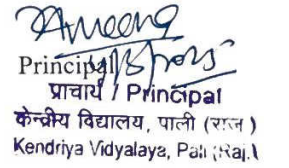 Principal
प्राचार्य / Principal
केन्द्रीय विद्यालय, पाली (राज.)
Kendriya Vidyalaya, Pali (Raj.)